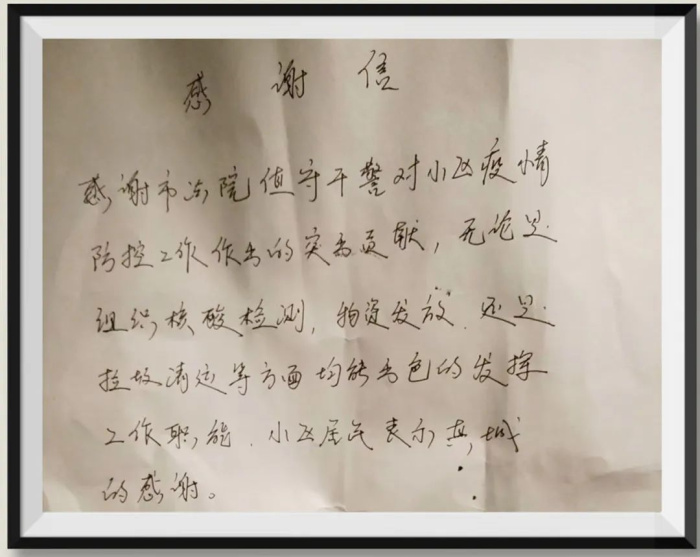 感谢信
感谢市法院值守干警对小区疫情
防控工作作出的突出贡献，无论是
组织核酸检测，物资发放，还是
垃圾清运等方面均能出色的发挥
工作职能，小区居民表示真诚
的感谢。